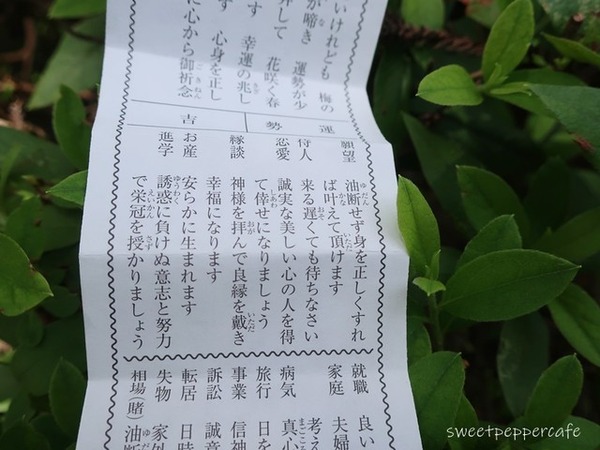 いけれども 梅の
が啼き 運勢が少
して 花咲く春
す 幸運の兆し
す 心身を正し
に心から御祈念
運勢 吉
願望 油断せず身を正しくすれ
ば叶えて頂けます
待人 来る遅くても待ちなさい
恋愛 誠実な美しい心の人を得
て倖せになりましょう
縁談 神様を拝んで良縁を戴き
幸福になります
お産 安らかに生まれます
進学 誘惑に負けぬ意志と努力
で栄冠を授かりましょう
就職 良い
家庭 夫婦
考え
病気 真心
旅行 日を
事業 信神
訴訟 誠意
転居 日時
失物 家外
相場(賭) 油断
sweetpeppercafe